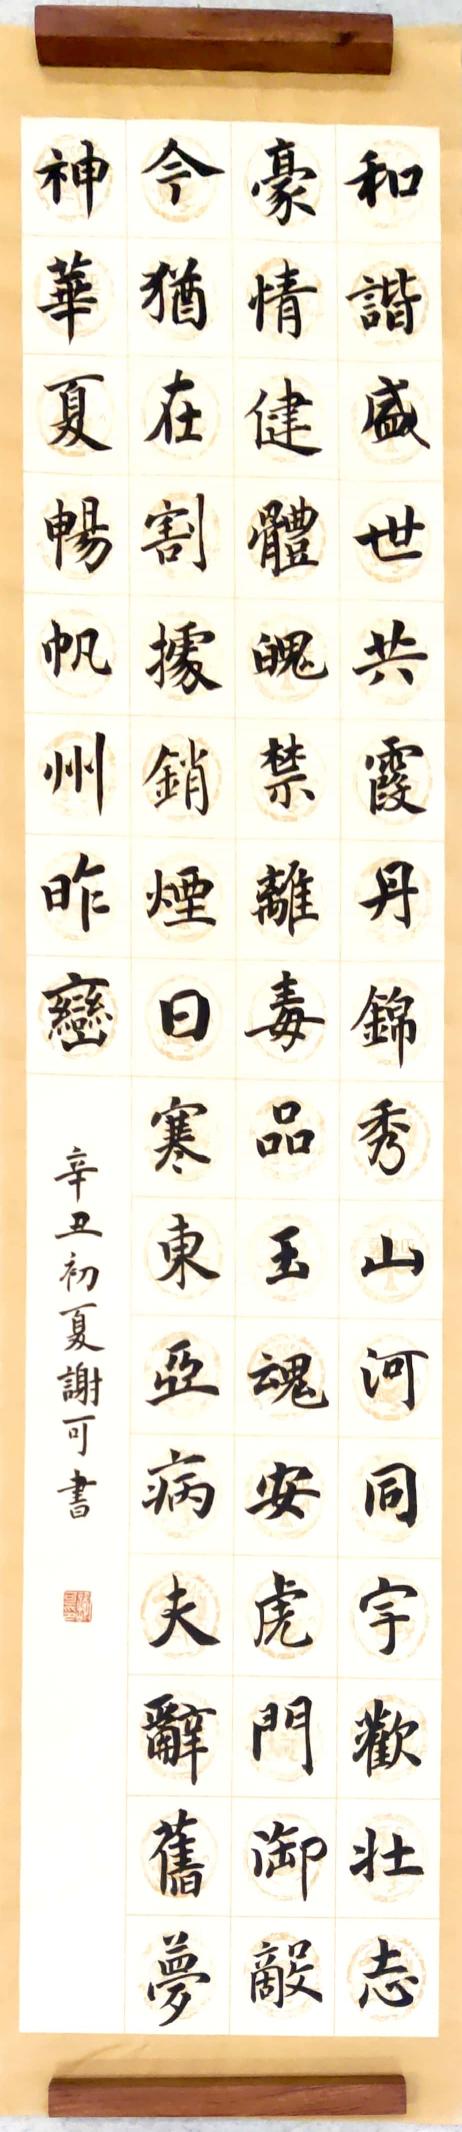 和諧盛世共霞丹錦秀山河同宇歡壯志
豪情健體魄禁離毒品玉魂安虎門御敵
今猶在割據銷煙日寒東亞病夫辭舊夢
神華夏暢帆州昨巒
辛丑初夏謝可書